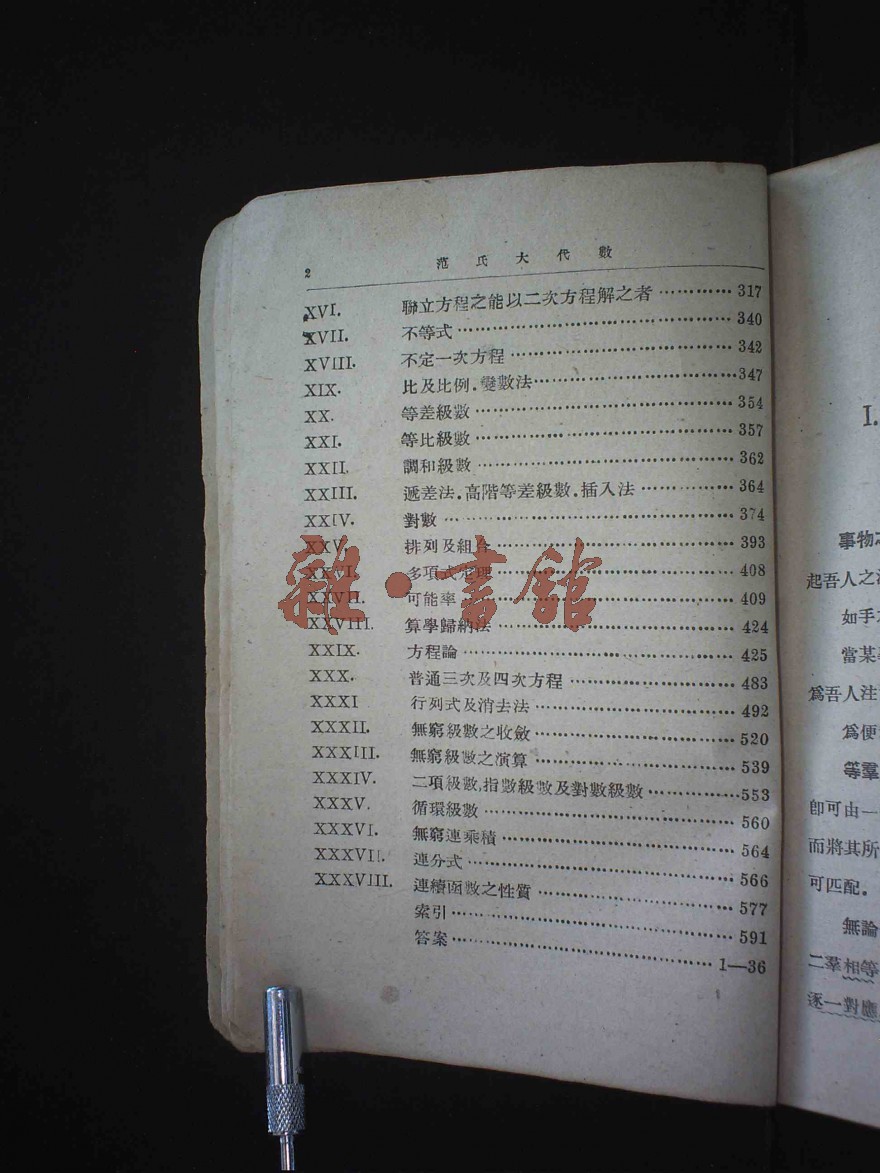 2 范氏大代數
XVI. 聯立方程之能以二次方程解之者 ············ 317
XVII. 不等式 ············ 340
XVIII. 不定一次方程 ············ 342
XIX. 比及比例.變數法 ············ 347
XX. 等差級數 ············ 354
XXI. 等比級數 ············ 357
XXII. 調和級數 ············ 362
XXIII. 遞差法.高階等差級數.插入法 ············ 364
XXIV. 對數 ············ 374
XXV. 排列及組合 ············ 393
XXVI. 多項式定理 ············ 408
XXVII. 可能率 ············ 409
XXVIII. 算學歸納法 ············ 424
XXIX. 方程論 ············ 425
XXX. 普通三次及四次方程 ············ 483
XXXI 行列式及消去法 ············ 492
XXXII. 無窮級數之收斂 ············ 520
XXXIII. 無窮級數之演算 ············ 539
XXXIV. 二項級數,指數級數及對數級數 ············ 553
XXXV. 循環級數 ············ 560
XXXVI. 無窮連乘積 ············ 564
XXXVII. 連分式 ············ 566
XXXVIII. 連續函數之性質 ············ 577
索引 ············ 591
答案 ············ 1—36
雜·書館
I.
事物
起吾人之
如手
當某
爲吾人注
爲便
等羣
卽可由一
而將其所
可匹配.
無論
二羣相等
逐一對應